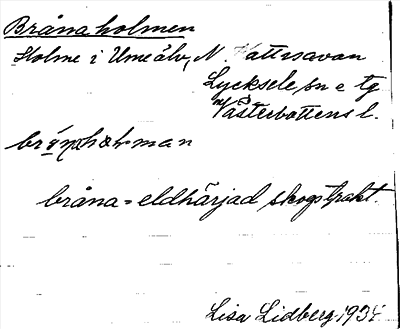 Bråna holmen
Holme i Umeälv, N. Vattusavan
Lycksele sn o tg
Västerbottens l.
bråna = eldhärjad skogstrakt.
Lisa Lidberg 1934